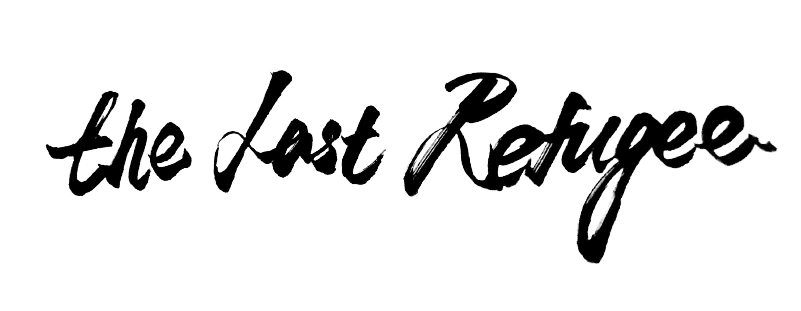 the Last Refugee